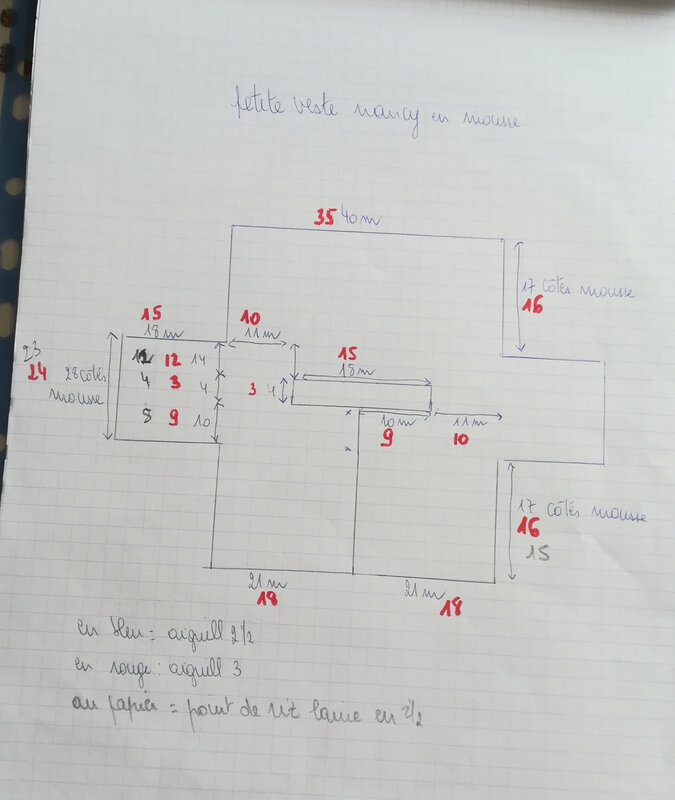 petite veste nancy en mousse
35 40 m
17 côtés mousse
16
15
18 m
10
11 m
12 12 14
15
18 m
23
24 28 côtés
mousse
4 3 4
3 4
8 9 10
10 m
9
11 m
10
17 côtés mousse
16
15
21 m
18
21 m
18
en bleu = aiguill 2 1/2
en rouge : aiguill 3
au papier = point de riz laine en 2 1/2